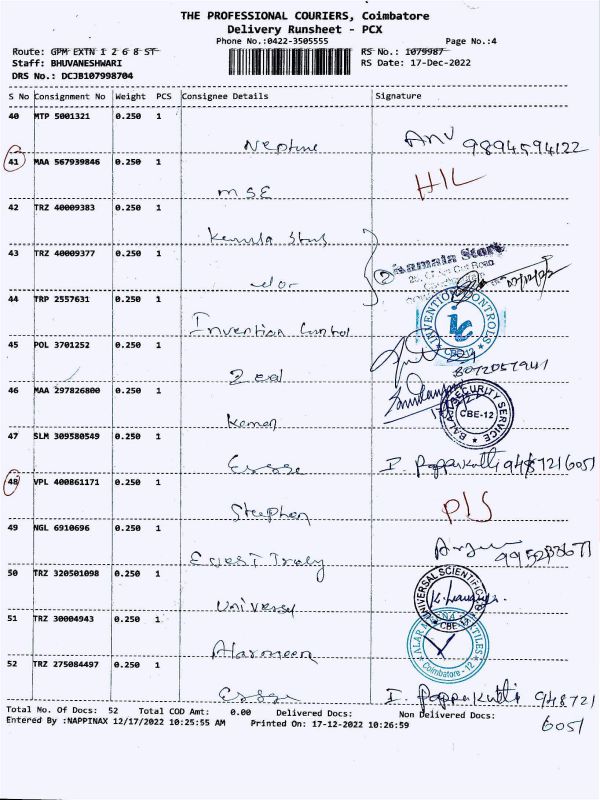 THE PROFESSIONAL COURIERS, Coimbatore
Delivery Runsheet - PCX
Phone No.:0422-3505555 Page No.:4
Route: GPM EXTN 1 2 6 8 ST RS No.: 1079987
Staff: BHUVANESHWARI RS Date: 17-Dec-2022
DRS No.: DCJB107998704
S No Consignment No Weight PCS Consignee Details Signature
40 MTP 5001321 0.250 1
Neptune Anu 9894594122
41 MAA 567939846 0.250 1
MSE HIL
42 TRZ 40009383 0.250 1
43 TRZ 40009377 0.250 1
do
44 TRP 2557631 0.250 1
Invention Control INVENTION CONTROLS ic
45 POL 3701252 0.250 1
Zeal
46 MAA 297826800 0.250 1
BALAJI SECURITY SERVICE CBE-12
47 SLM 309580549 0.250 1
Essge I. Pappakutti 9487216051
48 VPL 400861171 0.250 1
Stephen PLS
49 NGL 6910696 0.250 1
50 TRZ 320501098 0.250 1
UNIVERSAL SCIENTIFIC CBE-12
51 TRZ 30004943 0.250 1
Alarmeen Coimbatore - 12
52 TRZ 275084497 0.250 1
Essge I. Pappakutti 948721
6051
Total No. Of Docs: 52 Total COD Amt: 0.00 Delivered Docs: Non Delivered Docs:
Entered By :NAPPINAX 12/17/2022 10:25:55 AM Printed On: 17-12-2022 10:26:59